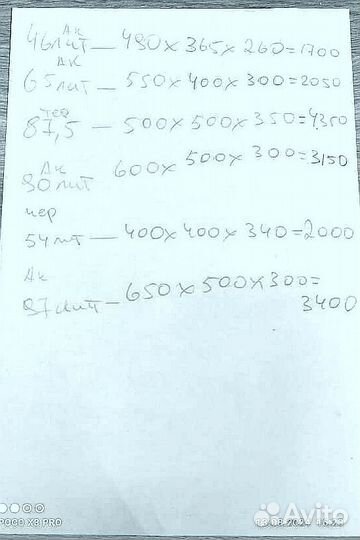 Ак
46лит — 480 х 365 х 260 = 1700
Ак
65лит — 550 х 400 х 300 = 2050
87,5 — 500 х 500 х 350 = 4350
Ак
90лит 600 х 500 х 300 = 3150
чер
54лит — 400 х 400 х 340 = 2000
Ак
97лит — 650 х 500 х 300 =
3400
POCO X3 PRO
Avito